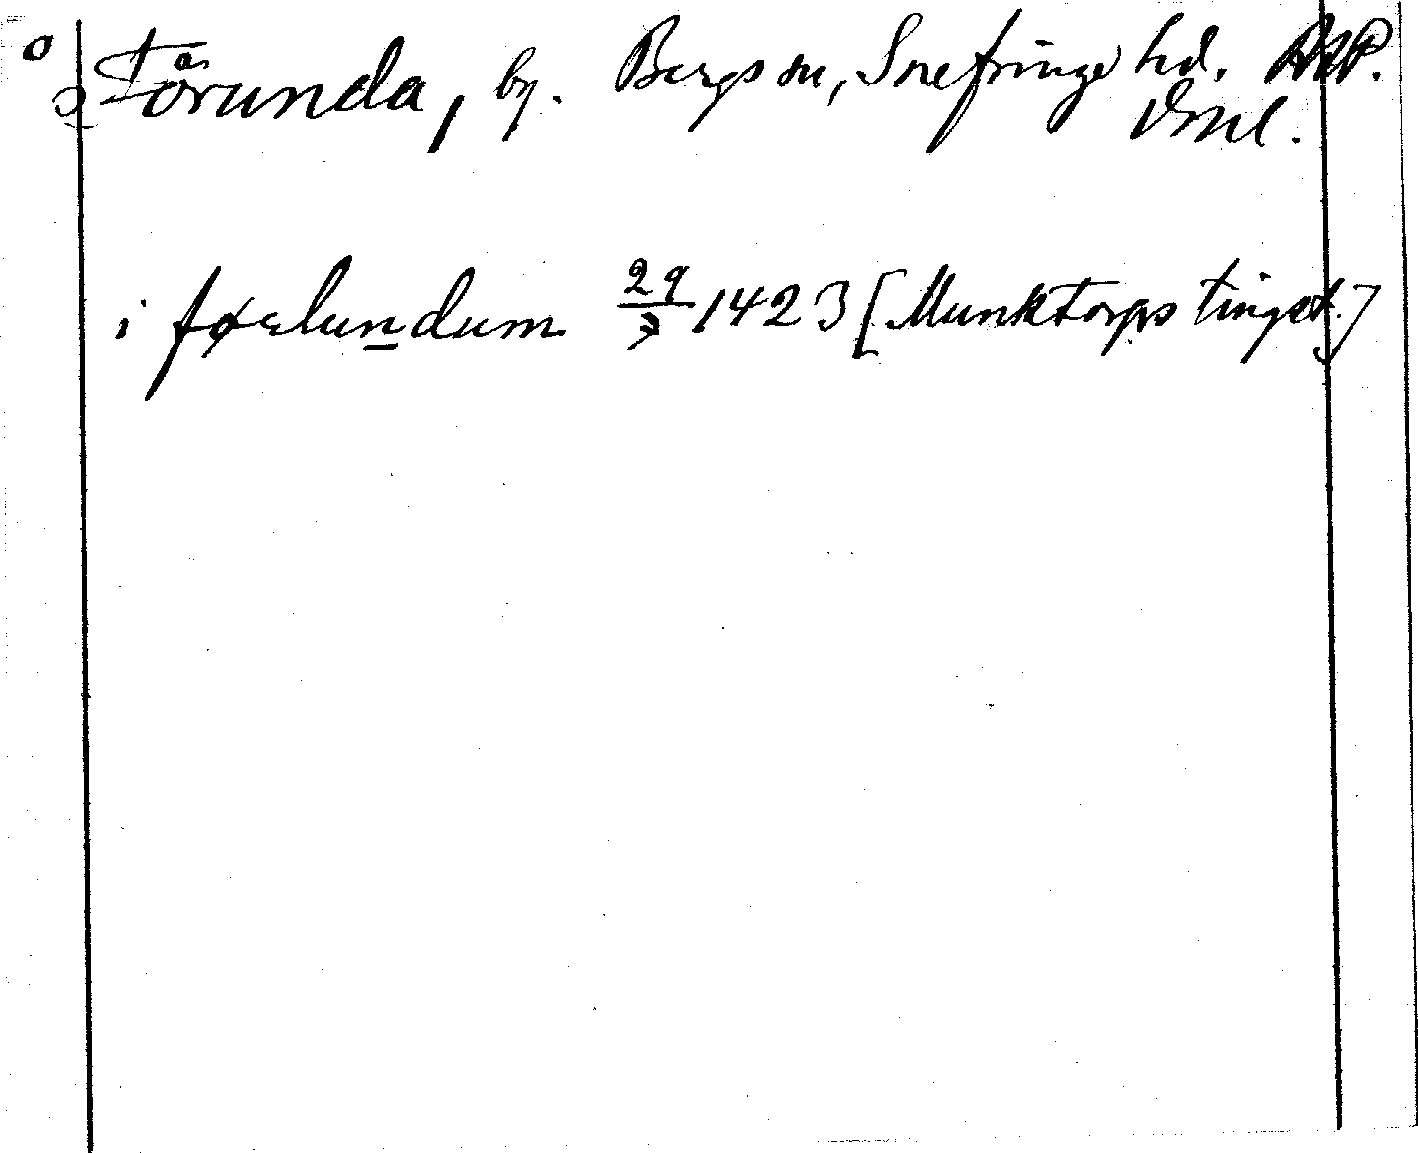 Förunda, by. Bergs sn, Snefringe hd.
Vml.
i føælundum 29/3 1423 [Munktorps tingst.]